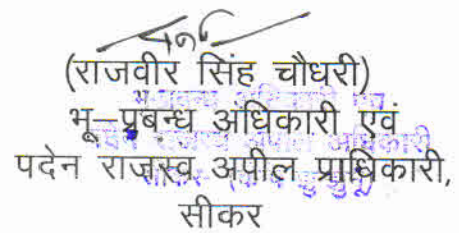 (राजवीर सिंह चौधरी)
भू–प्रबन्ध अधिकारी एवं
पदेन राजस्व अपील प्राधिकारी,
सीकर